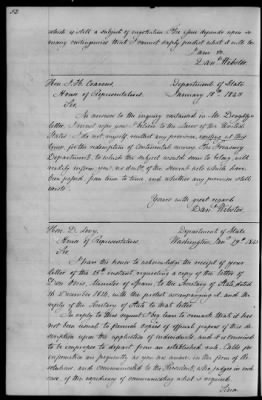 52
which is still a subject of negotiation. The issue depends upon so
many contingencies that I cannot safely predict what it will be.
I am &c.
Danl. Webster.
Hon. J. H. Cravens,
House of Representatives.
Department of State
January 18th 1843
Sir,
In answer to the inquiry contained in Mr. Doughty's
letter, I must refer you to the Laws of the United
States. I do not myself recollect any provision, existing at this
time, for the redemption of Continental money. The Treasury
Department, to which the subject would seem to belong, will
readily inform you, no doubt, of the several acts which have
been passed from time to time, and whether any provision still
exists.
Yours with great regard
Danl. Webster.
Hon. D. Levy,
House of Representatives.
Department of State
Washington, Jan. 19th 1843
Sir,
I have the honor to acknowledge the receipt of your
letter of the 18th instant, requesting a copy of the letter of
Don Onis, Minister of Spain, to the Secretary of State, dated
December 1818, with the protest accompanying it, and the
reply of the Secretary of State to that letter.
In reply to this request I beg leave to remark that it has
not been usual to furnish copies of official papers of this de-
scription upon the application of individuals, and it is considered
to be improper to depart from an established rule. Calls for
information are frequently as you are aware in the form of Re-
solutions and communicated to the President, who judges in each
case of the expediency of communicating what is required.